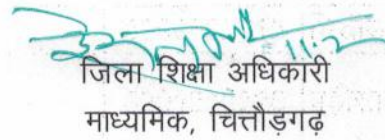 11.2
जिला शिक्षा अधिकारी
माध्यमिक, चित्तौड़गढ़